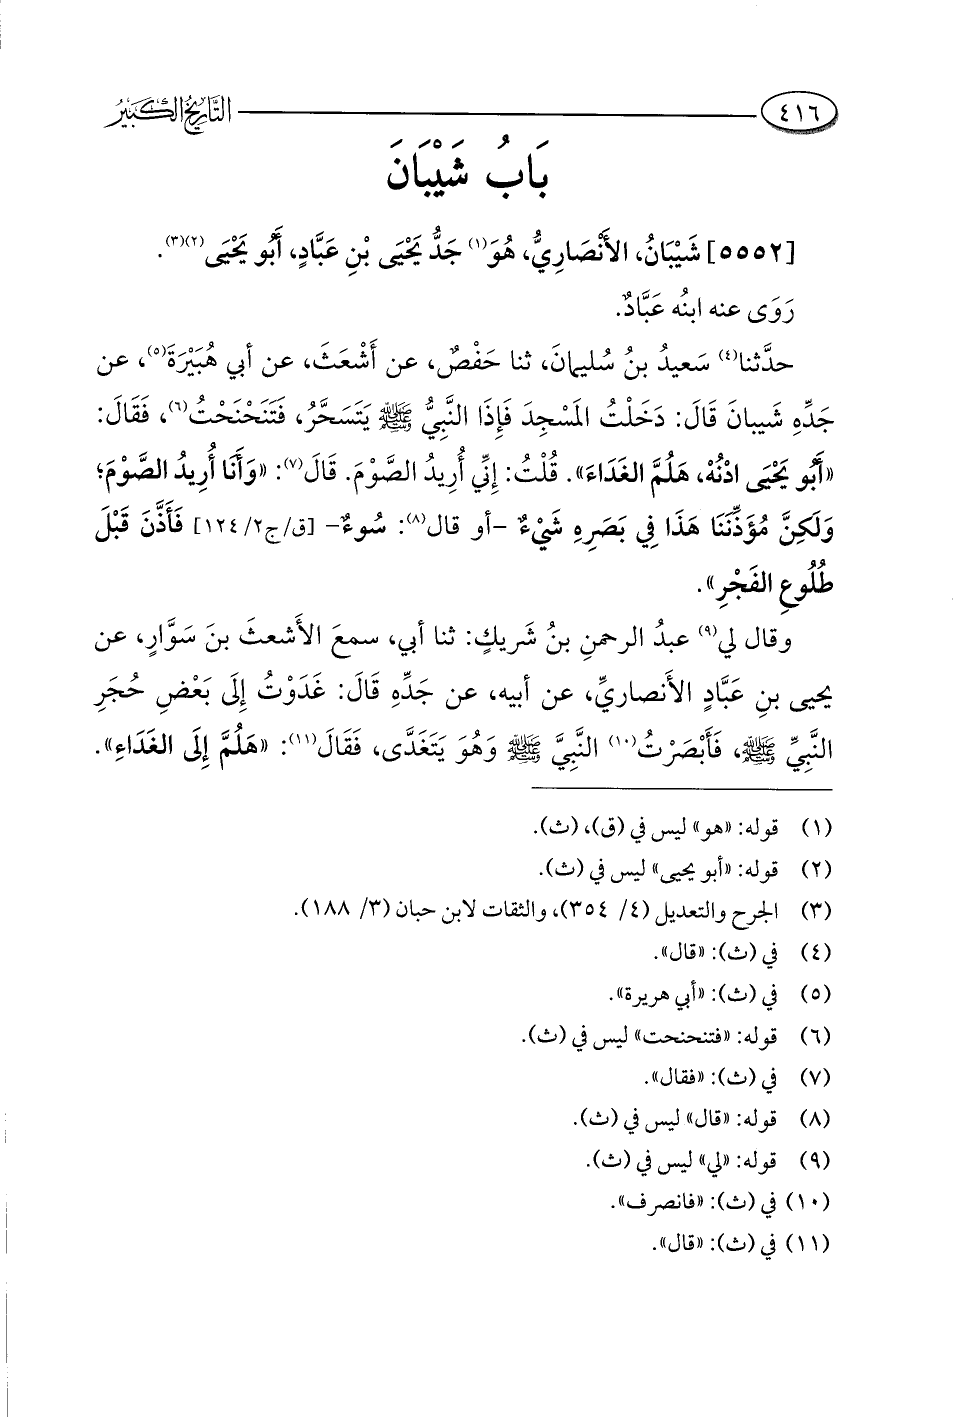 ٤١٦ التَّارِيخُ الكَبِيرُ
بَابُ شَيْبَانَ
[٥٥٥٢] شَيْبَانُ، الأَنْصَارِيُّ، هُوَ(١) جَدُّ يَحْيَى بْنِ عَبَّادٍ، أَبُو يَحْيَى(٢)(٣).
رَوَى عنه ابنُه عَبَّادٌ.
حدَّثنا(٤) سَعيدُ بنُ سُليمانَ، ثنا حَفْصٌ، عن أَشْعَثَ، عن أبي هُبَيْرَةَ(٥)، عن
جَدِّهِ شَيبانَ قَالَ: دَخَلْتُ المَسْجِدَ فَإِذَا النَّبِيُّ ﷺ يَتَسَحَّرُ، فَتَنَحْنَحْتُ(٦)، فَقَالَ:
«أَبُو يَحْيَى ادْنُهْ، هَلُمَّ الغَدَاءَ». قُلْتُ: إِنِّي أُرِيدُ الصَّوْمَ. قَالَ(٧): «وَأَنَا أُرِيدُ الصَّوْمَ؛
وَلَكِنَّ مُؤَذِّنَنَا هَذَا فِي بَصَرِهِ شَيْءٌ -أو قال(٨): سُوءٌ- [ق/ج٢/١٢٤] فَأَذَّنَ قَبْلَ
طُلُوعِ الفَجْرِ».
وقال لي(٩) عبدُ الرحمنِ بنُ شَريكٍ: ثنا أبي، سمعَ الأَشعثَ بنَ سَوَّارٍ، عن
يحيى بنِ عَبَّادٍ الأَنصاريِّ، عن أبيه، عن جَدِّهِ قَالَ: غَدَوْتُ إِلَى بَعْضِ حُجَرِ
النَّبِيِّ ﷺ، فَأَبْصَرْتُ(١٠) النَّبِيَّ ﷺ وَهُوَ يَتَغَدَّى، فَقَالَ(١١): «هَلُمَّ إِلَى الغَدَاءِ».
(١) قوله: «هو» ليس في (ق)، (ث).
(٢) قوله: «أبو يحيى» ليس في (ث).
(٣) الجرح والتعديل (٤/ ٣٥٤)، والثقات لابن حبان (٣/ ١٨٨).
(٤) في (ث): «قال».
(٥) في (ث): «أبي هريرة».
(٦) قوله: «فتنحنحت» ليس في (ث).
(٧) في (ث): «فقال».
(٨) قوله: «قال» ليس في (ث).
(٩) قوله: «لي» ليس في (ث).
(١٠) في (ث): «فانصرف».
(١١) في (ث): «قال».